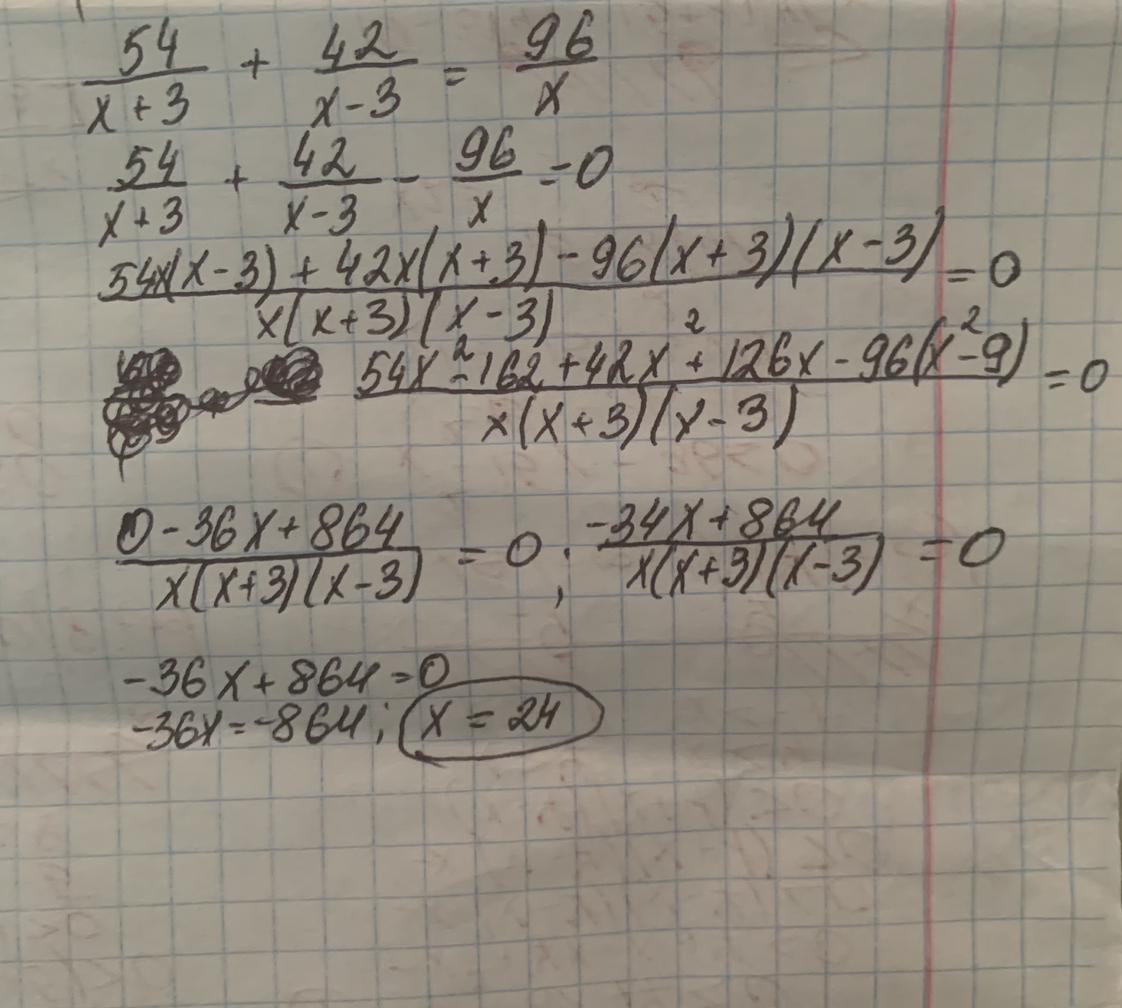 54/(x+3) + 42/(x-3) = 96/x
54/(x+3) + 42/(x-3) - 96/x = 0
(54x(x-3) + 42x(x+3) - 96(x+3)(x-3))/(x(x+3)(x-3)) = 0
(54x² - 162 + 42x² + 126x - 96(x²-9))/(x(x+3)(x-3)) = 0
(0 - 36x + 864)/(x(x+3)(x-3)) = 0; (-34x + 864)/(x(x+3)(x-3)) = 0
-36x + 864 = 0
-36x = -864; x = 24